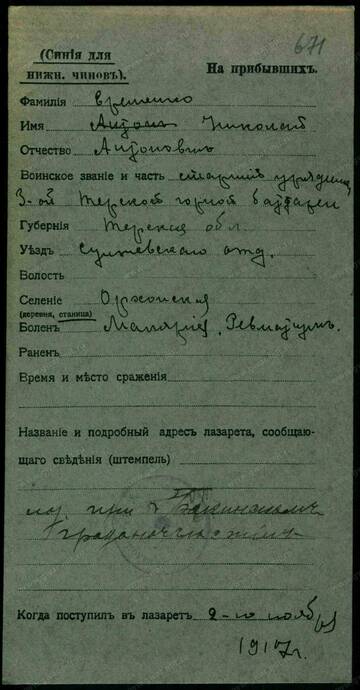 671
(Синія для
нижн. чиновъ).
На прибывшихъ.
Фамилія Еременко
Имя Антонъ Николай
Отчество Антоновичъ
Воинское званіе и часть старшій урядник
3-ой Терской горной батареи
Губернія Терская обл.
Уѣздъ Сунженскаго отд.
Волость
Селеніе
(деревня, станица)
Боленъ Малярія, Ревматизмъ.
Раненъ
Время и мѣсто сраженія
Названіе и подробный адресъ лазарета, сообщаю-
щаго свѣдѣнія (штемпель)
лаз. при Бакинскомъ
градоначальств
Когда поступилъ въ лазаретъ 2-го нояб
1917 г.